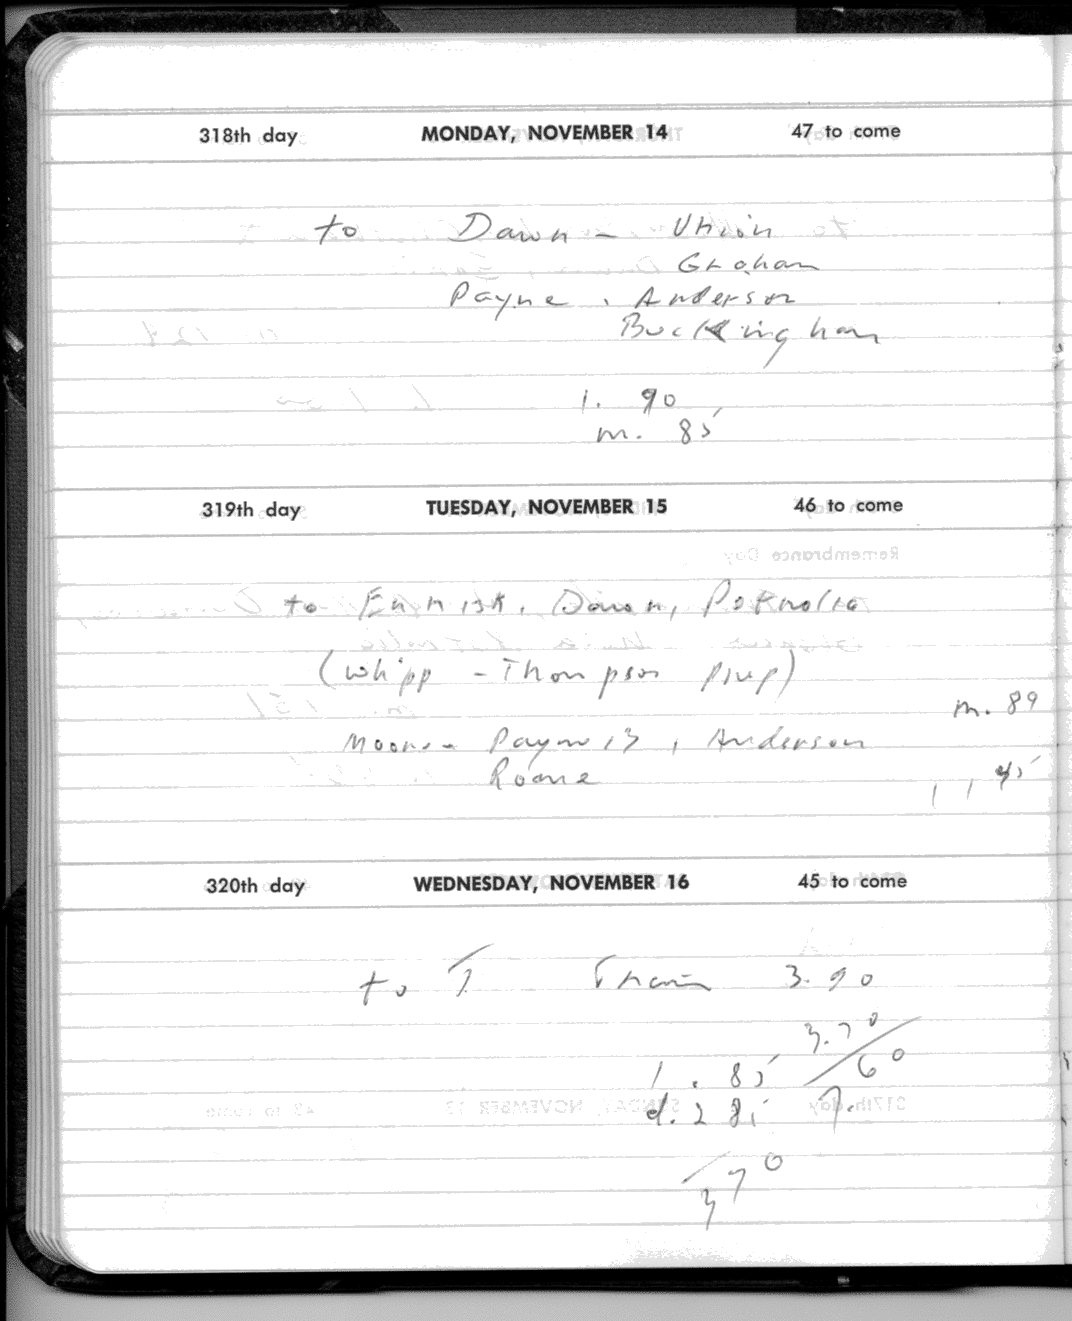 318th day MONDAY, NOVEMBER 14 47 to come
to Dawn - Union
Graham
Payne, Anderson
Buckingham
1. 90
m. 85
319th day TUESDAY, NOVEMBER 15 46 to come
to Dawn, Petrolia
(Whipp - Thompson prep)
m. 89
Moore - Payne 13, Anderson
Roane
320th day WEDNESDAY, NOVEMBER 16 45 to come
to T Train 3.90
3.70
1. 85 60
d. 2 85 7.
3 70